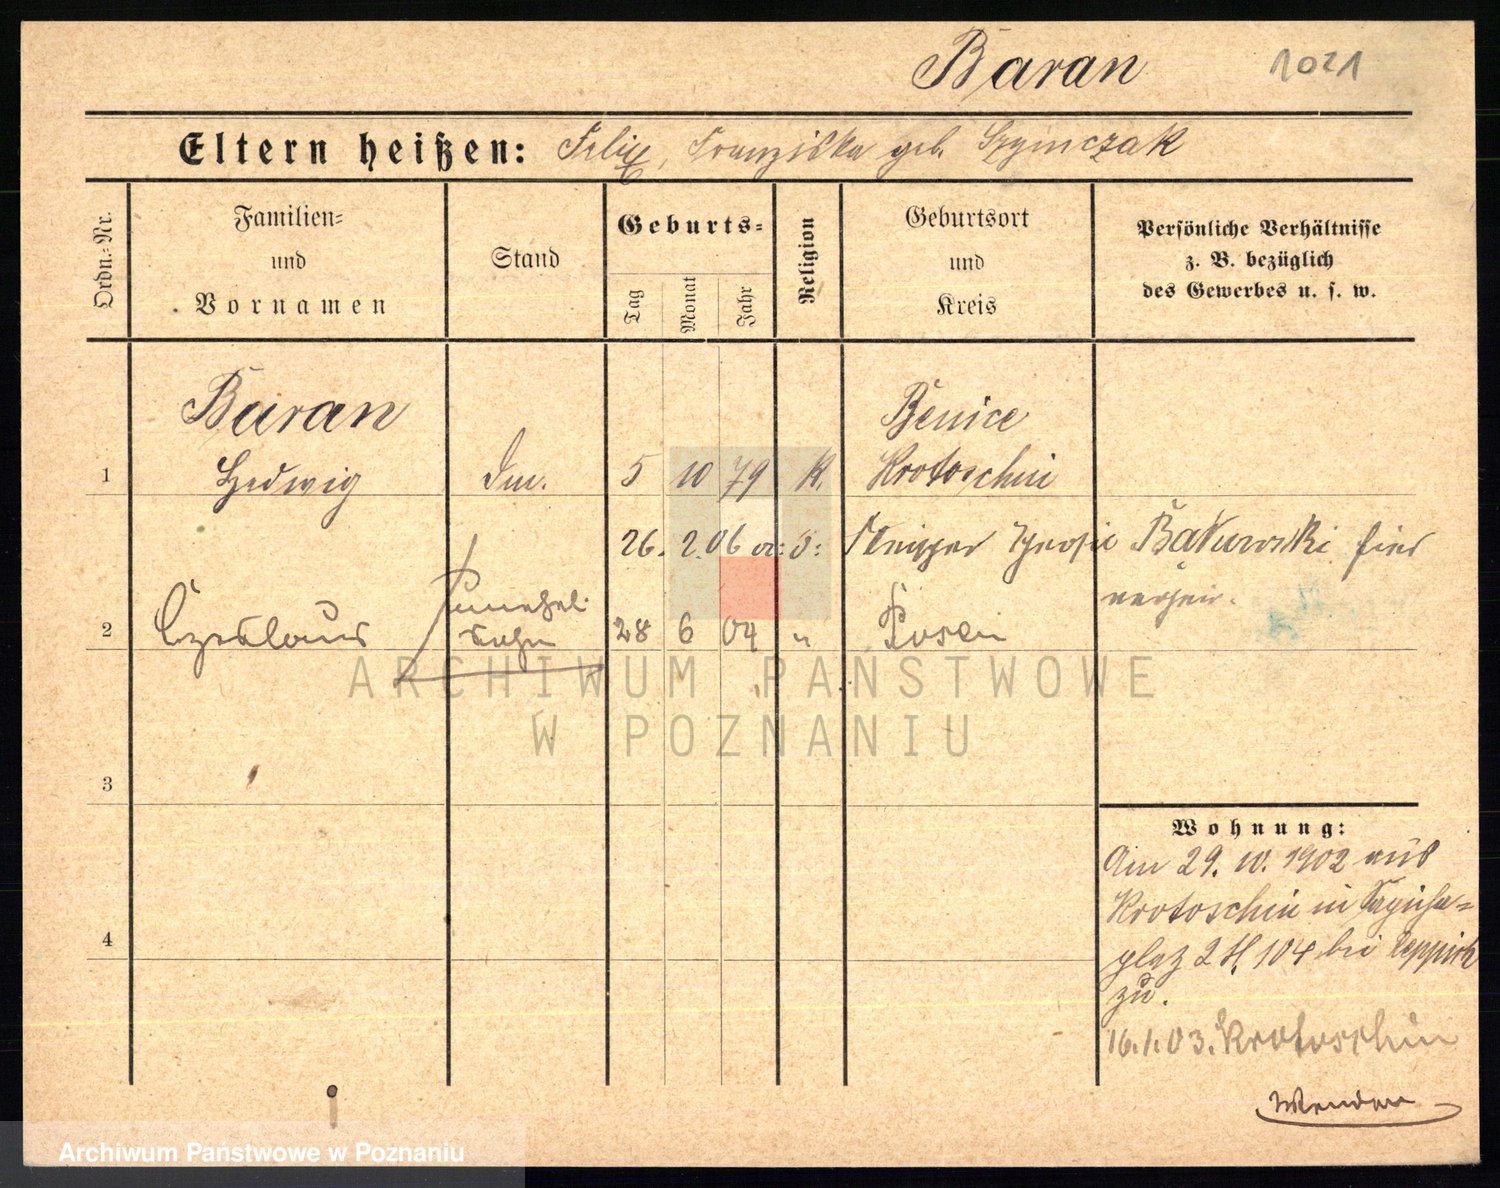 Baran 1021
Eltern heißen: Felix, Franziska geb. Szymczak
Ordn.-Nr.
Familien-
und
Vornamen
Stand
Geburts-
Tag
Monat
Jahr
Religion
Geburtsort
und
Kreis
Persönliche Verhältnisse
z. B. bezüglich
des Gewerbes u. s. w.
Baran Benice
1 Hedwig 5 10 79 K. Krotoschin
26. 2. 06 Bakowski hier
2 Czeslaus sohn 28 6 04 " Posen
ARCHIWUM PAŃSTWOWE
W POZNANIU
3
Wohnung:
Am 29. 10. 1902 aus
Krotoschin in Sapieha=
4
platz 2 H. 104 bei Teppich
zu.
16.1.03. Krotoschin
Wenden
Archiwum Państwowe w Poznaniu